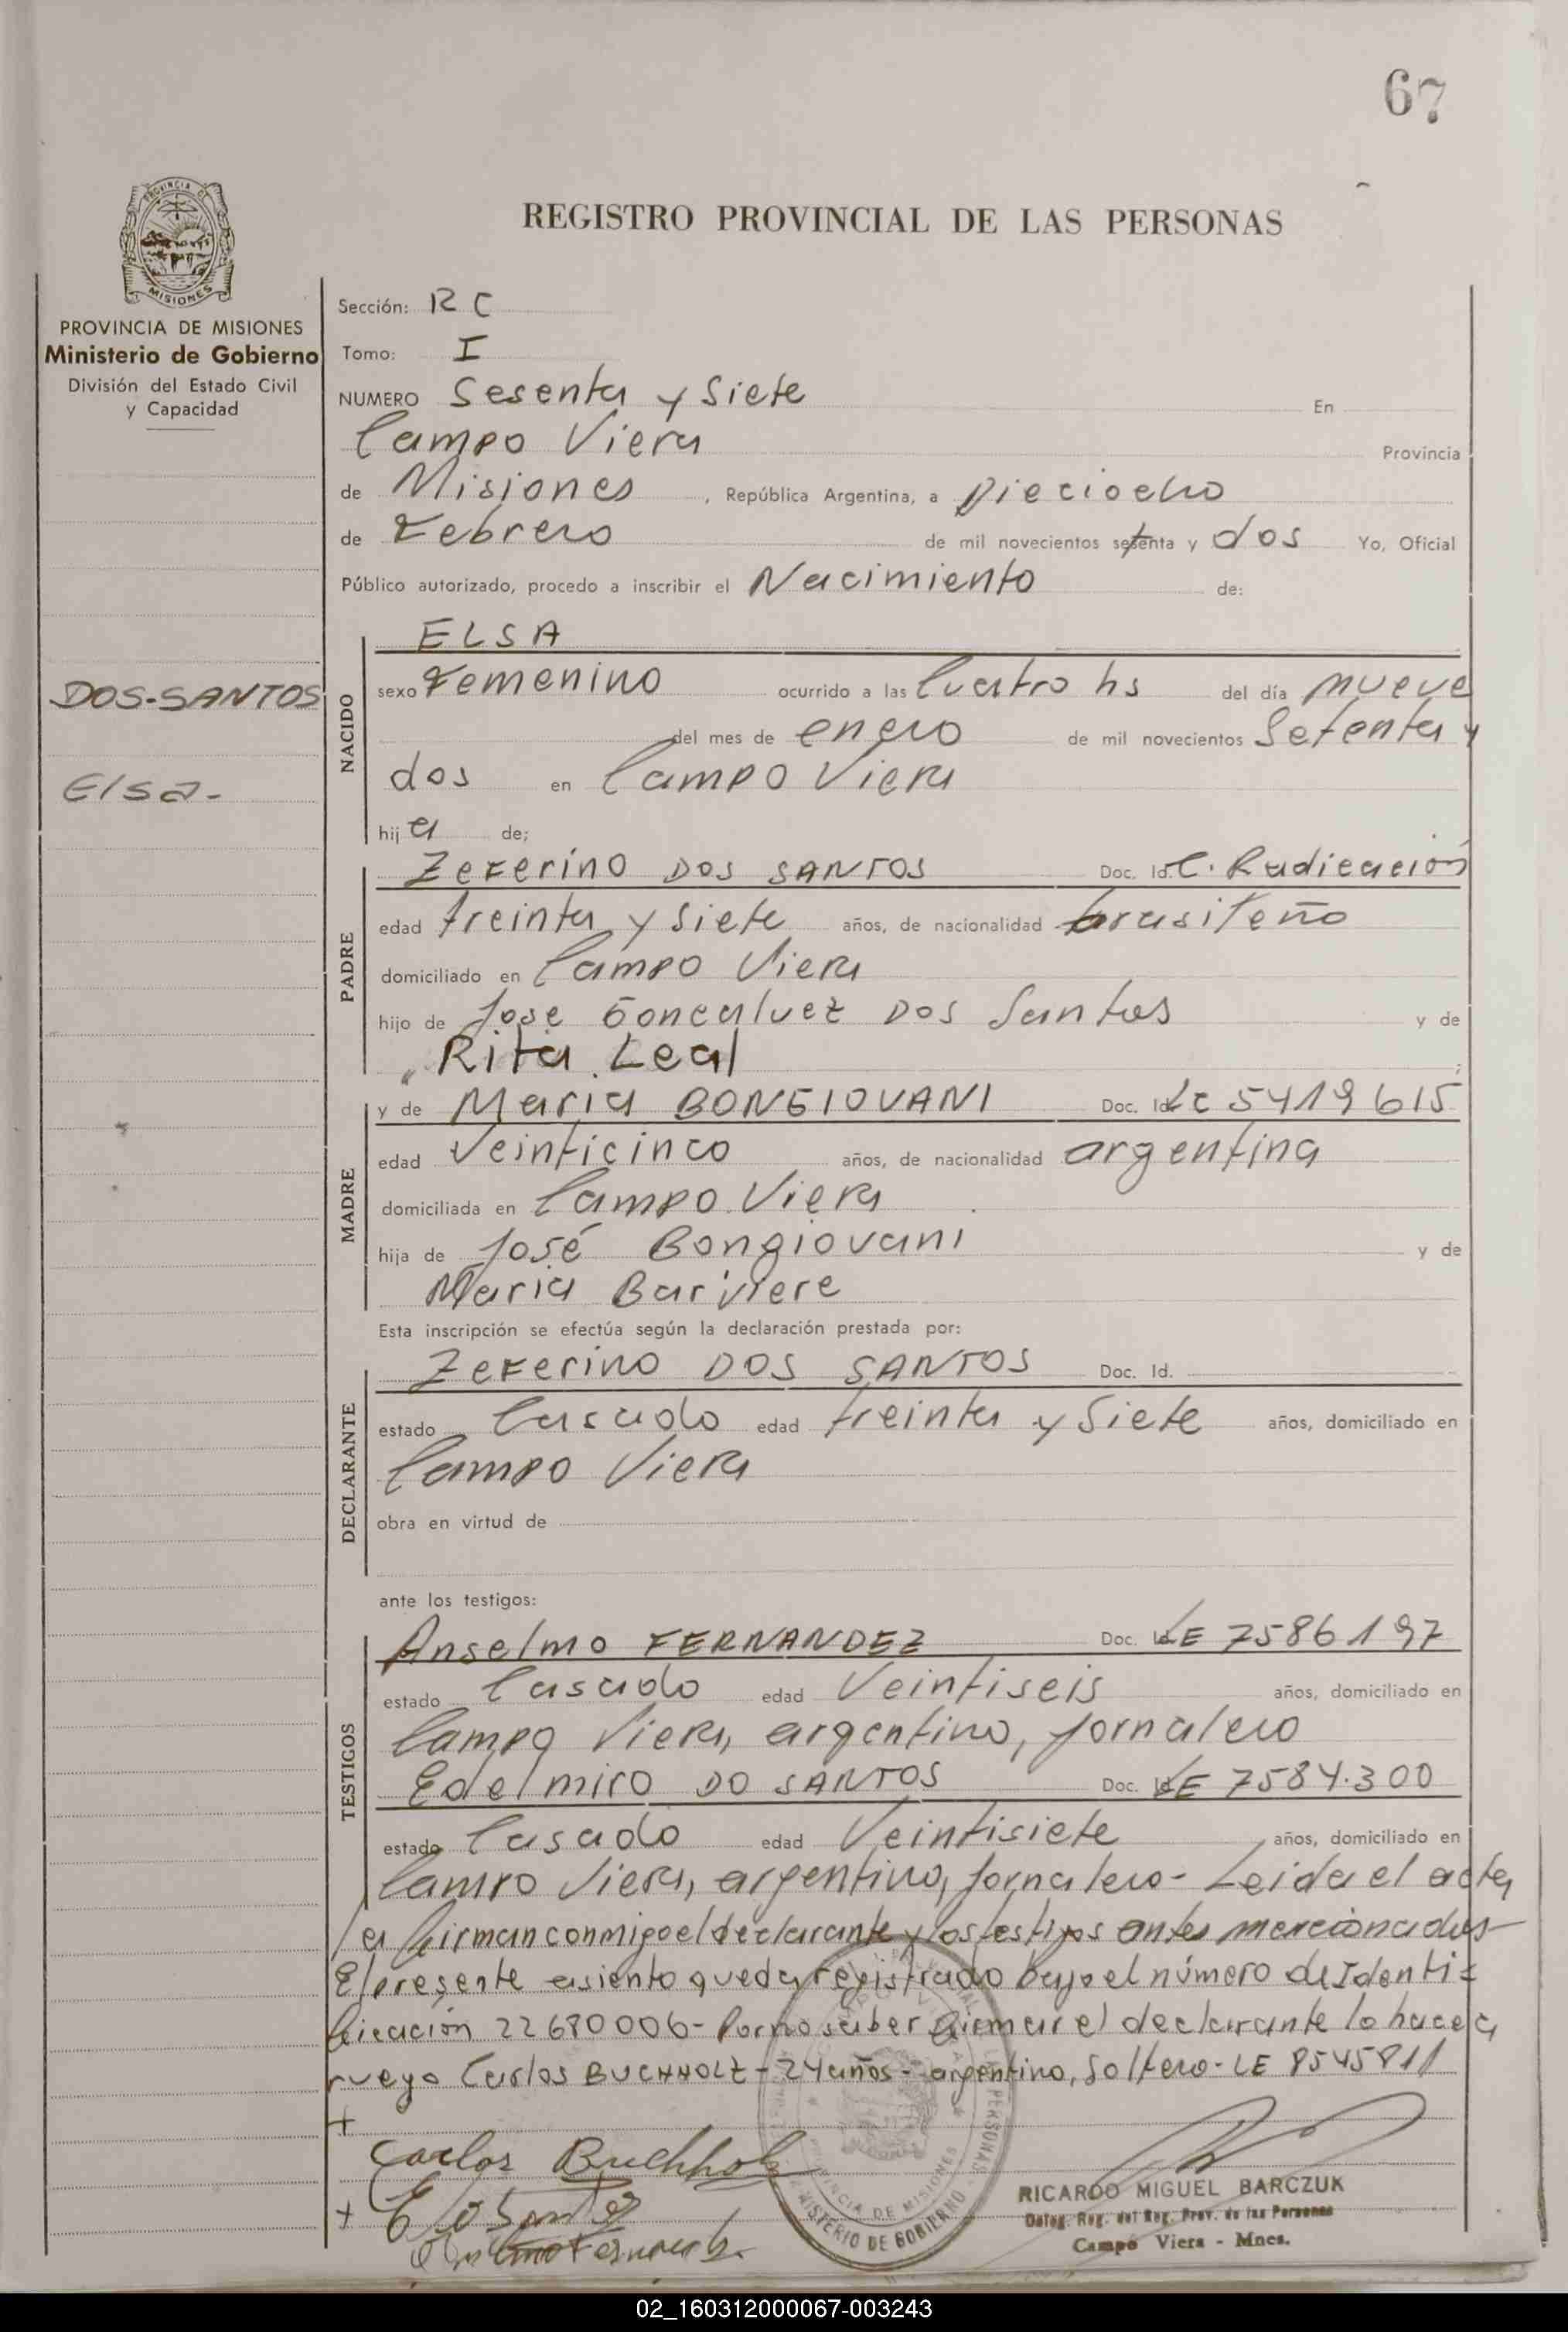 67
PROVINCIA DE
MISIONES
REGISTRO PROVINCIAL DE LAS PERSONAS
PROVINCIA DE MISIONES
Ministerio de Gobierno
División del Estado Civil
y Capacidad
DOS-SANTOS
Elsa-
Sección: RC
Tomo: I
NUMERO Sesenta y Siete En
Campo Viera Provincia
de Misiones, República Argentina, a Dieciocho
de Febrero de mil novecientos setenta y dos Yo, Oficial
Público autorizado, procedo a inscribir el Nacimiento de:
NACIDO
ELSA
sexo Femenino ocurrido a las Cuatro hs del día nueve
del mes de enero de mil novecientos Setenta y
dos en Campo Viera
hij a de;
PADRE
Zeferino DOS SANTOS Doc. Id. C. Radicación
edad treinta y siete años, de nacionalidad brasileño
domiciliado en Campo Viera
hijo de Jose Goncalvez Dos Santos y de
Rita Leal ;
MADRE
y de Maria BONGIOVANI Doc. Id. LC 5419615
edad Veinticinco años, de nacionalidad argentina
domiciliada en Campo Viera
hija de José Bongiovani y de
Maria Barviere
Esta inscripción se efectúa según la declaración prestada por:
DECLARANTE
Zeferino DOS SANTOS Doc. Id.
estado Casado edad treinta y Siete años, domiciliado en
Campo Viera
obra en virtud de
ante los testigos:
TESTIGOS
Anselmo FERNANDEZ Doc. Id. LE 7586197
estado Casado edad Veintiseis años, domiciliado en
Campo Viera, argentino, jornalero
Edelmiro DO SANTOS Doc. Id. LE 7584.300
estado Casado edad Veintisiete años, domiciliado en
Campo Viera, argentino, jornalero- Leida el acta
la firman conmigo el declarante y los testigos antes mencionados-
El presente asiento queda registrado bajo el número de Identi=
ficación 22680006- Por no saber firmar el declarante lo hace a
ruego Carlos BUCHHOLZ- 24 años- argentino, Soltero- LE 8545811
+
Carlos Buchholz
+ E Do Santos
Anselmo Fernandez
MINISTERIO DE GOBIERNO
PROVINCIA DE MISIONES
RICARDO MIGUEL BARCZUK
Deleg. Reg. del Reg. Prov. de las Personas
Campo Viera - Mnes.
02_160312000067-003243